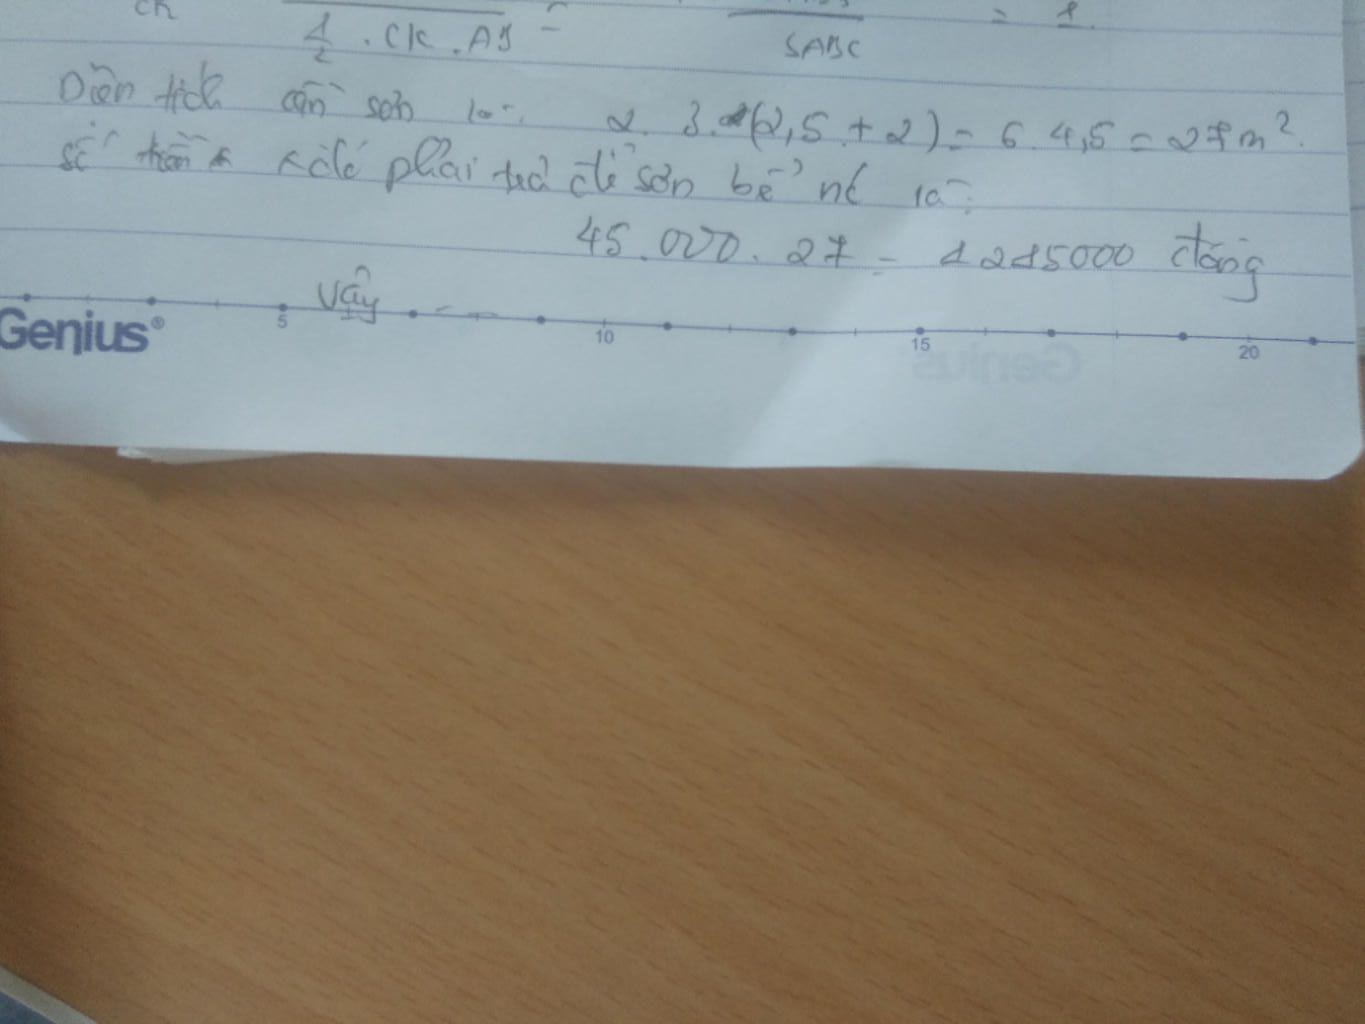 CK
1/2 . CK . AB = SABC = 1.
Diện tích cần sơn là: 2. 3. (2,5 + 2) = 6. 4,5 = 27 m².
số tiền phải trả để sơn bể nc là:
45.000. 27 = 1215000 đồng
Vậy - -
5 10 15 20
Genius® Genius